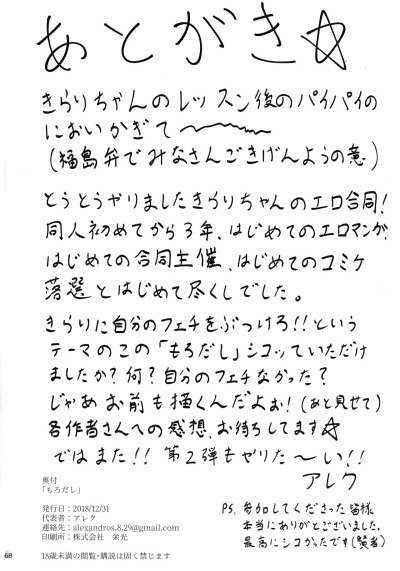 あとがき☆
きらりちゃんのレッスン後のパイパイの
においかぎて〜
(福島弁でみなさんごきげんようの意)
とうとうやりましたきらりちゃんのエロ合同!
同人初めてから3年、はじめてのエロマンガ、
はじめての合同主催、はじめてのコミケ
落選とはじめて尽くしでした。
きらりに自分のフェチをぶつけろ!!という
テーマのこの「もろだし」シコッていただけ
ましたか?何?自分のフェチなかった?
じゃあお前も描くんだよぉ!(あと見せて)
各作者さんへの感想、お待ちしてます☆
ではまた!!第2弾もやりた〜い!!
アレク
奥付
「もろだし」
発行日:2018/12/31
代表者:アレク
連絡先:alexandros.8.29@gmail.com
印刷所:株式会社 栄光
18歳未満の閲覧・購読は固く禁じます
P.S. 参加してくださった皆様
本当にありがとございました。
最高にシコかったです(賢者)
68